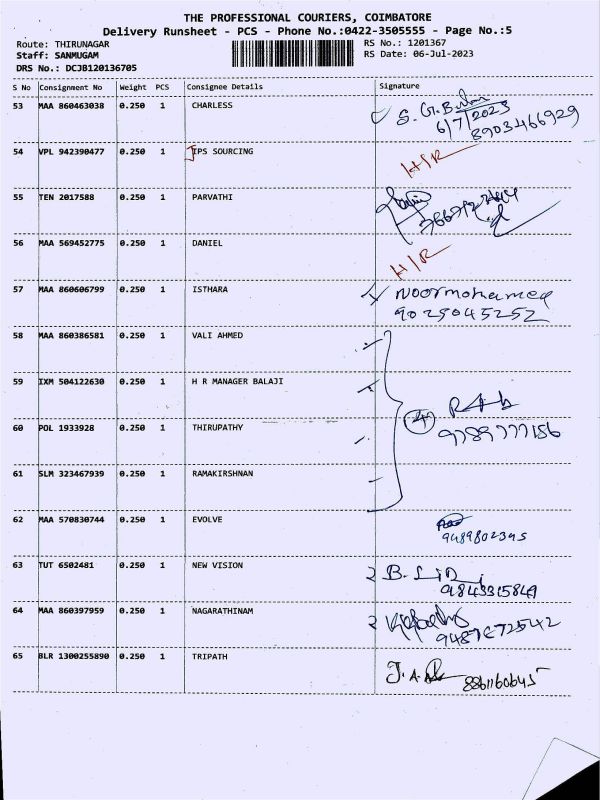 THE PROFESSIONAL COURIERS, COIMBATORE
Delivery Runsheet - PCS - Phone No.:0422-3505555 - Page No.:5
Route: THIRUNAGAR RS No.: 1201367
Staff: SANMUGAM RS Date: 06-Jul-2023
DRS No.: DCJB120136705
S No Consignment No Weight PCS Consignee Details Signature
53 MAA 860463038 0.250 1 CHARLESS
6/7/2023
8903466929
54 VPL 942390477 0.250 1 IPS SOURCING H/R
55 TEN 2017588 0.250 1 PARVATHI
56 MAA 569452775 0.250 1 DANIEL H/R
57 MAA 860606799 0.250 1 ISTHARA Noormohamed
9025045252
58 MAA 860386581 0.250 1 VALI AHMED
59 IXM 504122630 0.250 1 H R MANAGER BALAJI
60 POL 1933928 0.250 1 THIRUPATHY 4
9789777186
61 SLM 323467939 0.250 1 RAMAKIRSHNAN
62 MAA 570830744 0.250 1 EVOLVE
9489802345
63 TUT 6502481 0.250 1 NEW VISION
64 MAA 860397959 0.250 1 NAGARATHINAM
65 BLR 1300255890 0.250 1 TRIPATH
8861160645